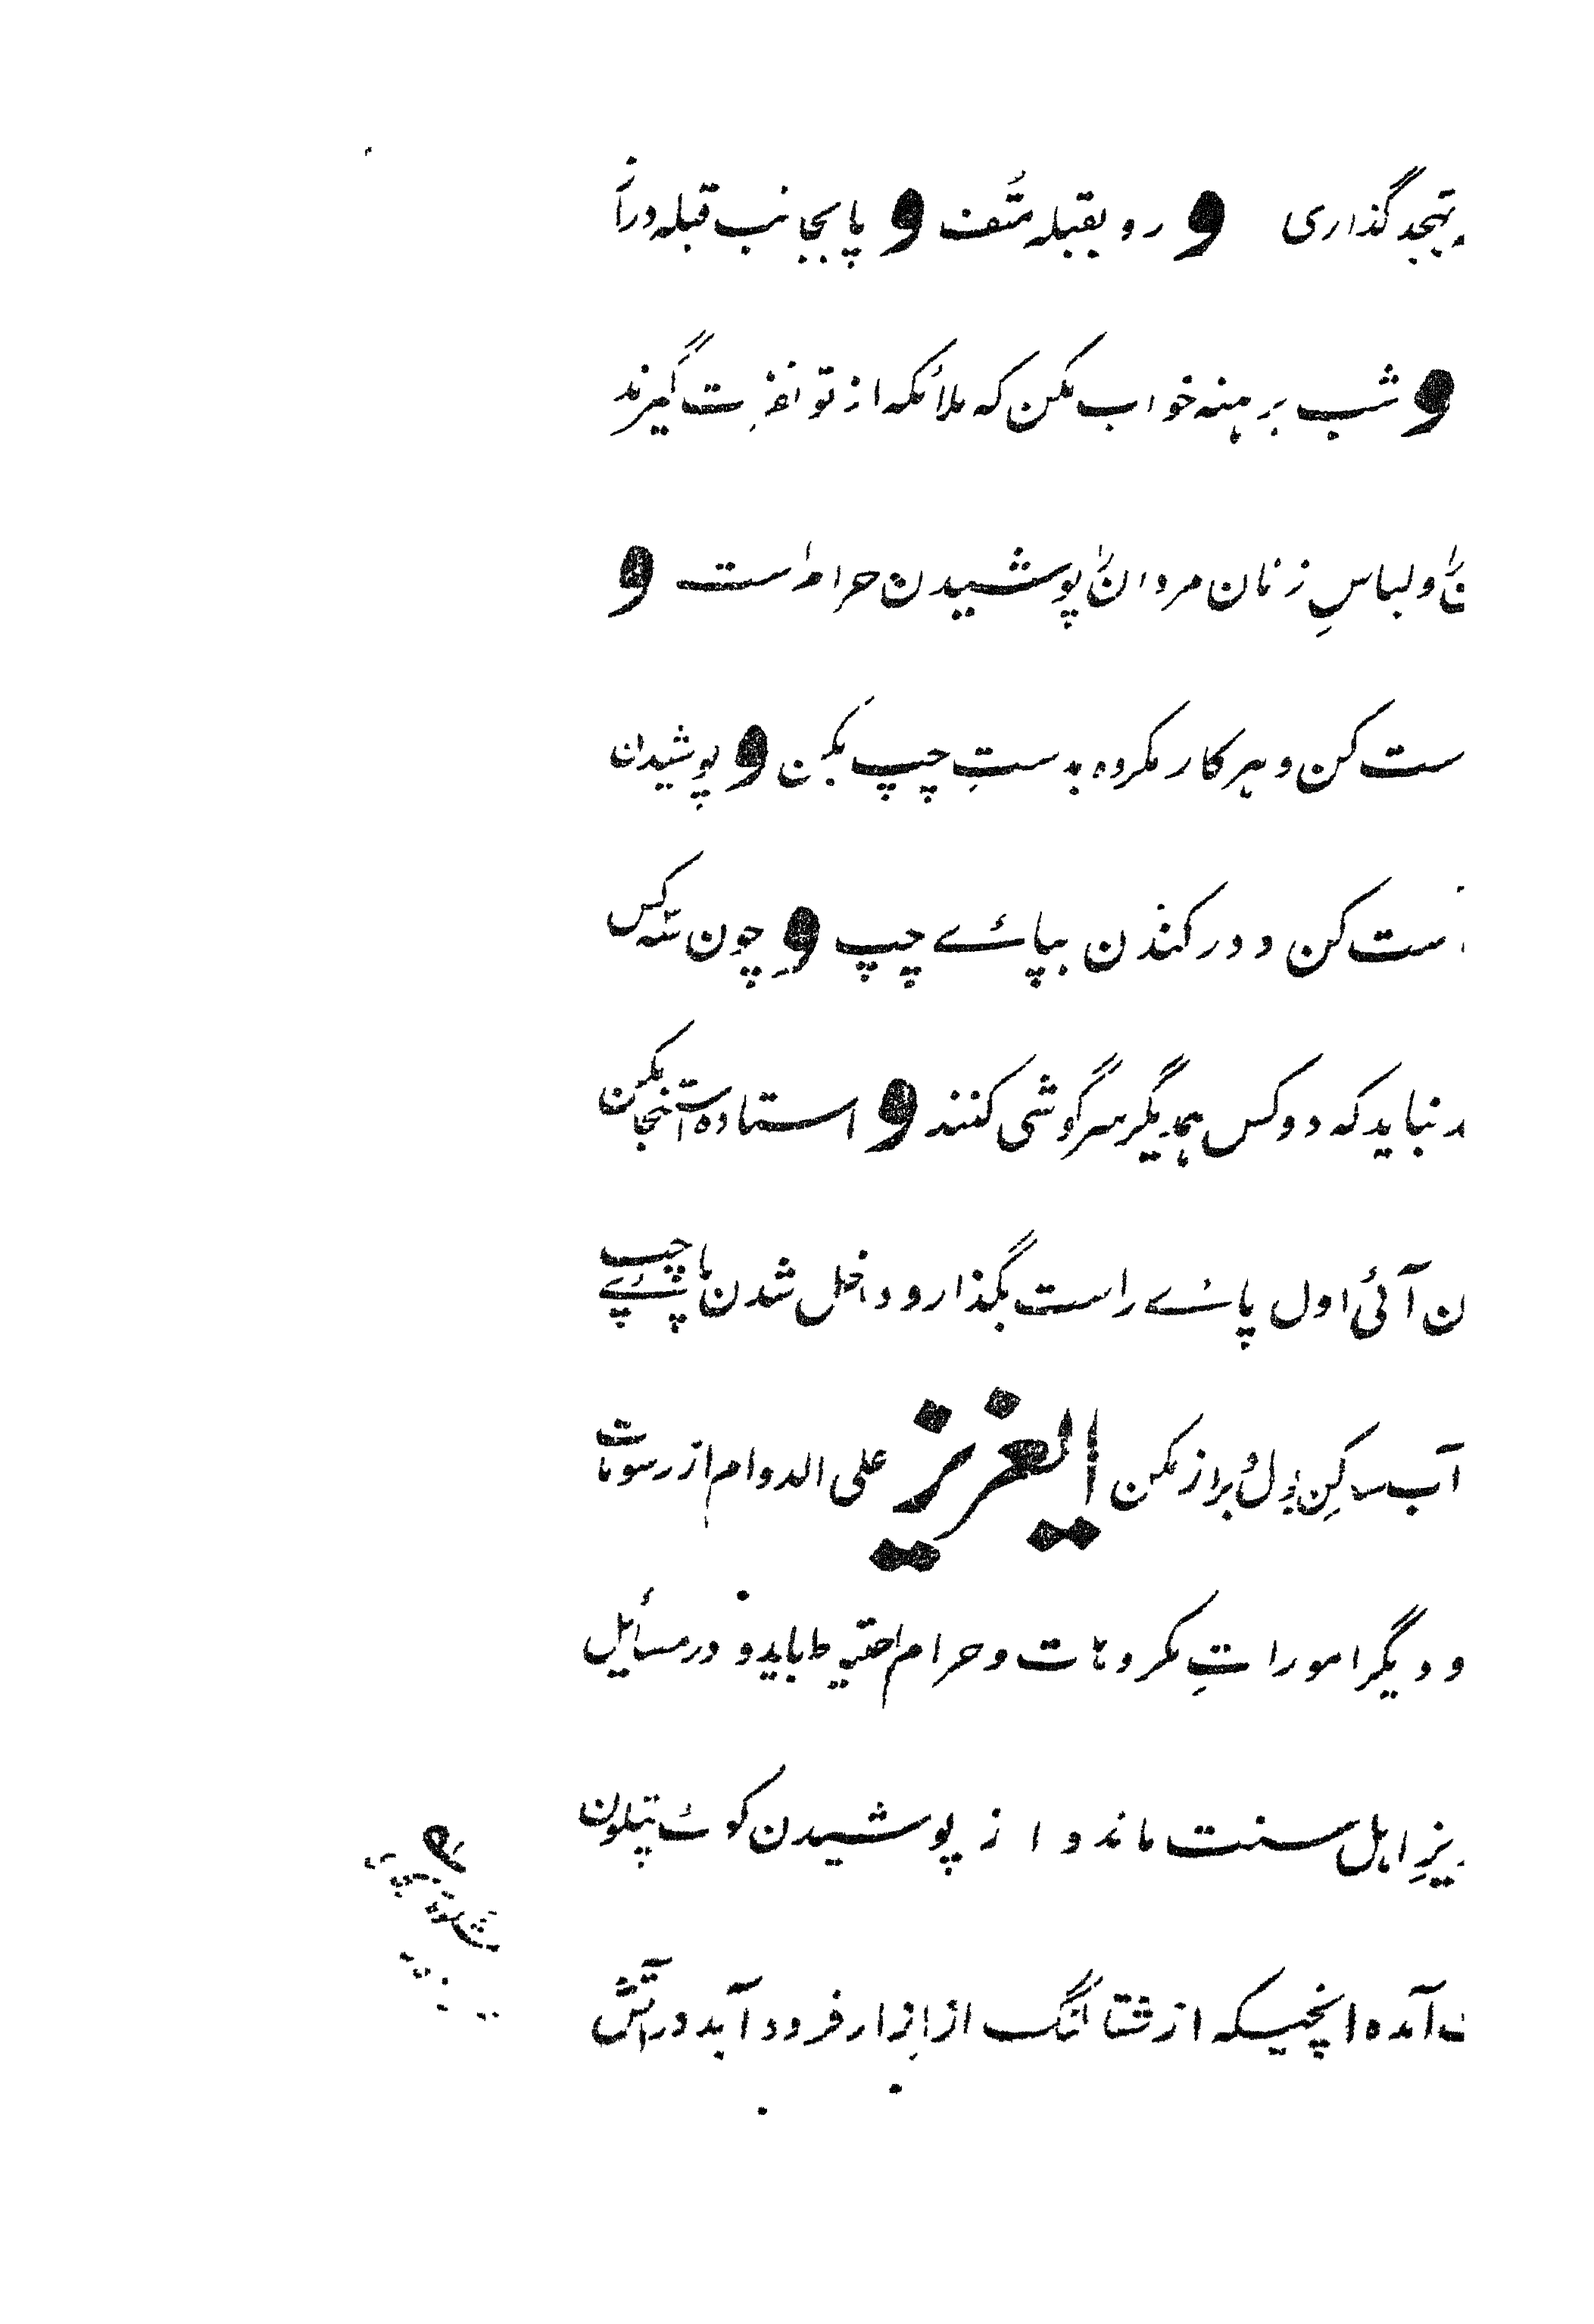 تهجد گذاری و رو بقبله تُف و پا بجانب قبله دراز
و شب برہنہ خواب مکن کہ ملائکہ از تو نفرت گیرند
و لباسِ زنان مردان را پوشیدن حرام است و
ست کن و ہر کار مکروہ بدستِ چپ بکن و پوشیدن
ست کن و در کندن بپائے چپ و چون سہ کس
نباید کہ دو کس ہمدیگر سرگوشی کنند و استادہ استنجا مکن
آئی اول پائے راست بگذار و داخل شدن پائے چپ
آب ساکن بول و براز مکن ایعزیز علی الدوام از رسومات
و دیگر امورات مکروہات و حرام احتیاط باید و در مسائل
اہل سنت ماند و از پوشیدن کوٹ پتلون
آمدہ انچیکہ از شتالنگ از ازار فرود آید در آتش